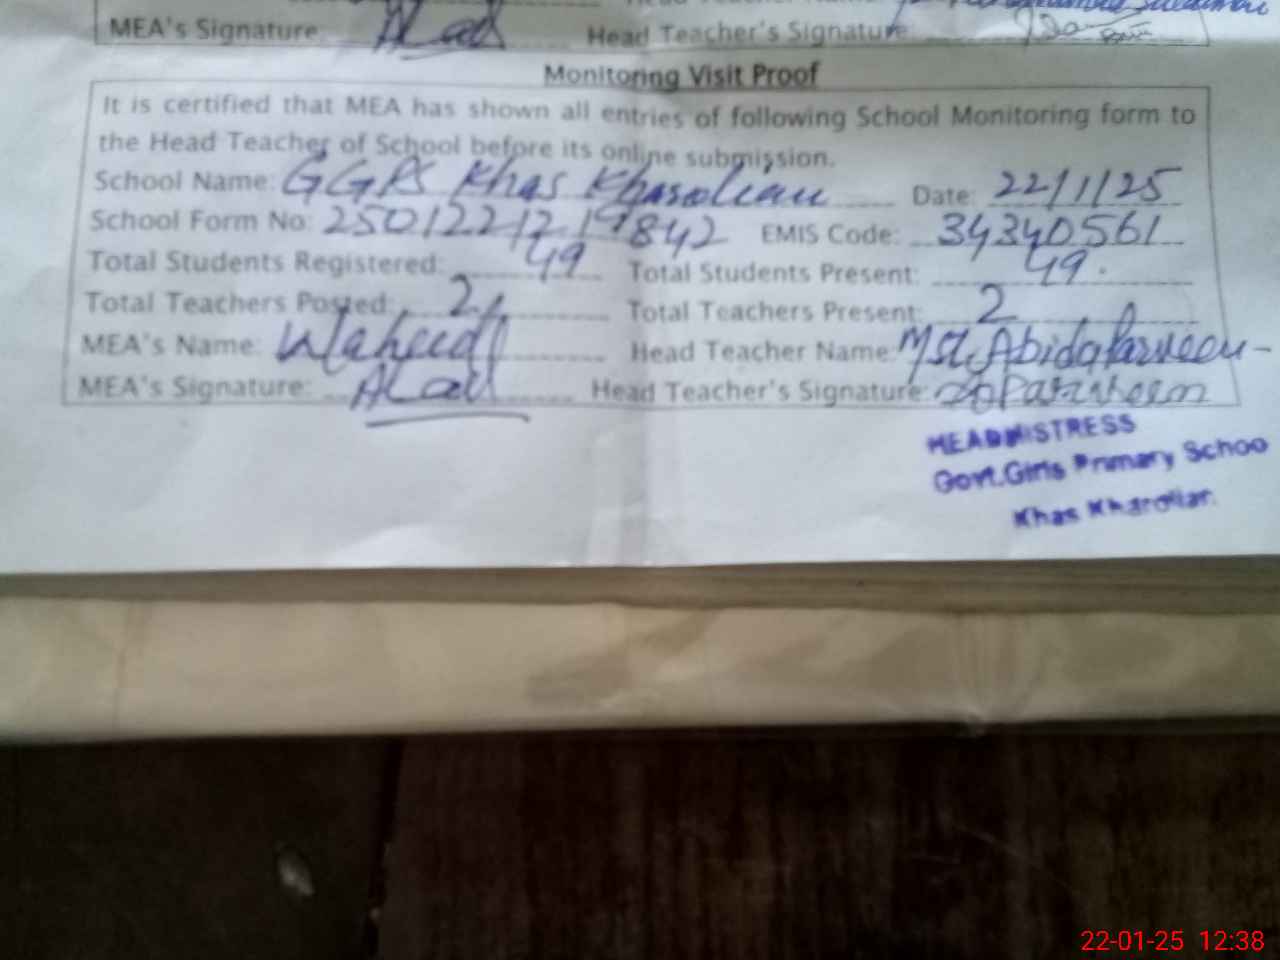 MEA's Signature: Head Teacher's Signature:
Monitoring Visit Proof
It is certified that MEA has shown all entries of following School Monitoring form to
the Head Teacher of School before its online submission.
School Name: GGPS Khas Kharolian Date: 22/1/25
School Form No: 2501221219842 EMIS Code: 34340561
Total Students Registered: 49 Total Students Present: 49
Total Teachers Posted: 2 Total Teachers Present: 2
MEA's Name: Waheed Head Teacher Name: Mst. Abida Parveen
MEA's Signature: Head Teacher's Signature: Parveen
HEADMISTRESS
Govt.Girls Primary Schoo
Khas Kharolian
22-01-25 12:38